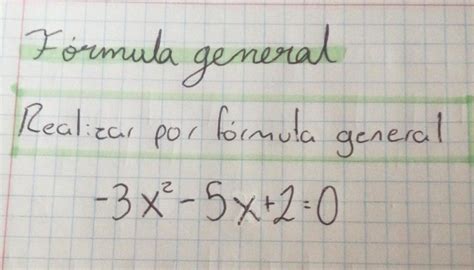 Fórmula general
Realizar por fórmula general
-3x²-5x+2=0